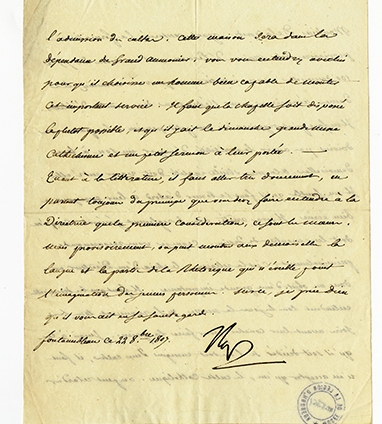 l'admission du culte. Cette maison sera dans la
dépendance du Grand aumonier; vous vous entendrez avec lui
pour qu'il choisisse un homme bien capable de monter
cet important service. Il faut que la chapelle soit disposée
le plutot possible, et qu'il y ait le dimanche grande messe
Cathéchisme et un petit sermon à leur portée. —
Quant à la littérature, il faut aller très doucement, en
partant toujours du principe que vous devez faire entendre à la
Directrice que la première considération, ce sont les mœurs.
Mais provisoirement, on peut montrer aux demoiselles la
langue et la partie de la Rhétorique qui n'éveille point
l'imagination des jeunes personnes. Sur ce, je prie Dieu
qu'il vous ait en sa sainte garde.
fontainebleau ce 22 8.bre 1807.